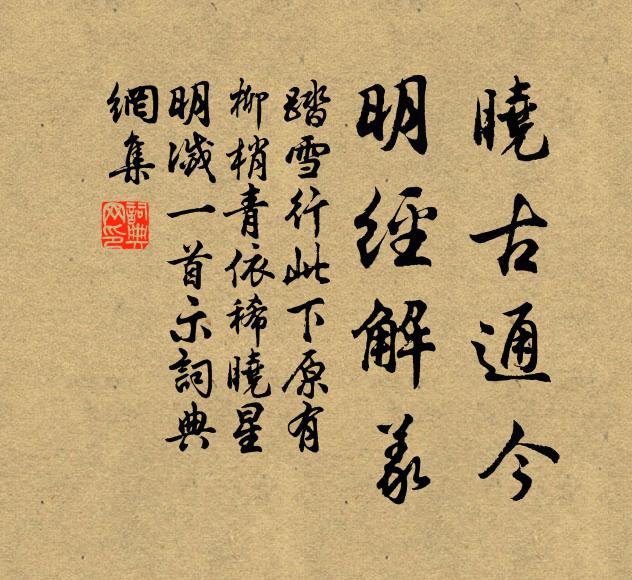 曉古通今
明經解義
踏雪行此下原有
柳梢青依稀曉星
明滅一首示詞典
網集
詞典
网印